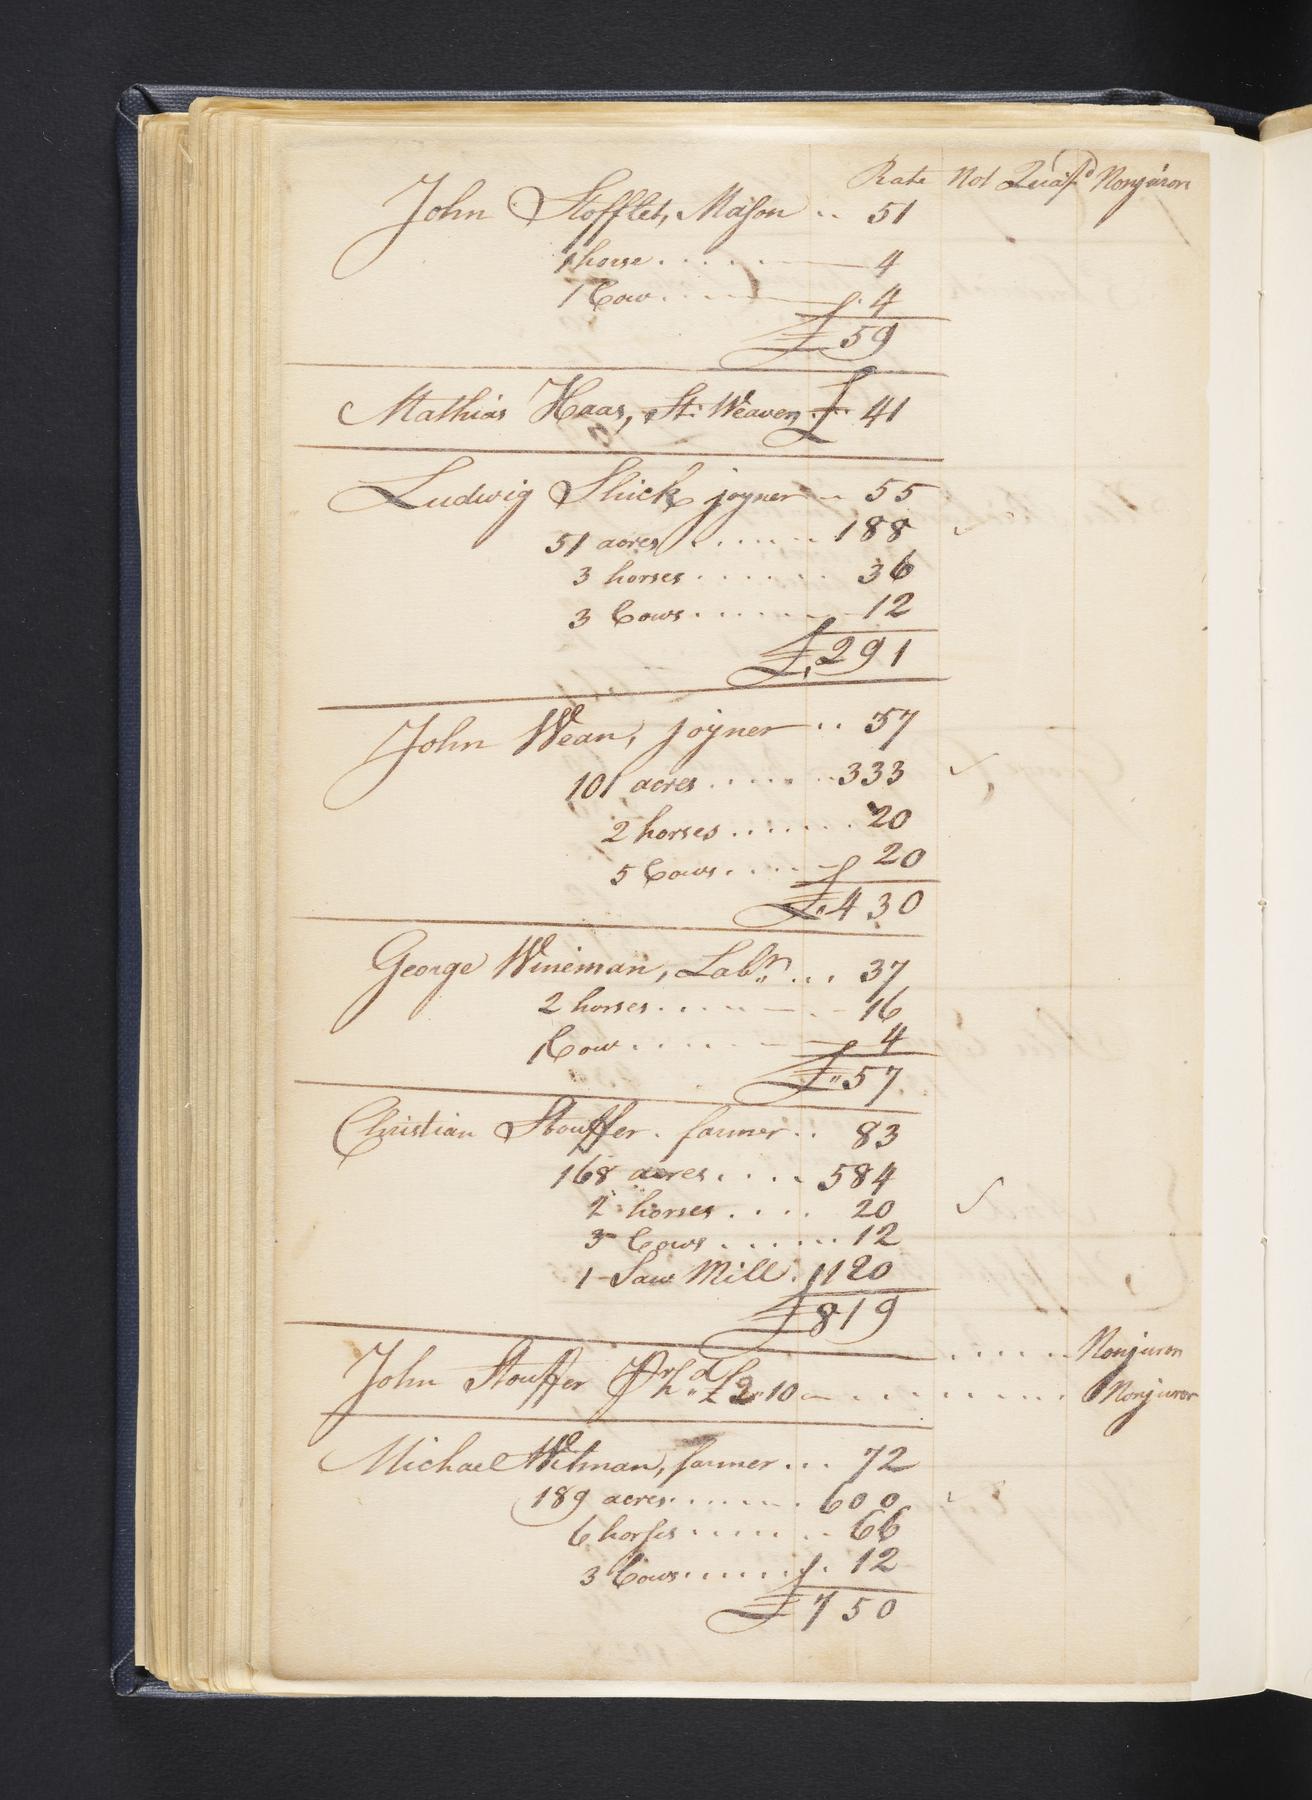 Rate Not Qualifd Nonjuror
John Stofflet, Mason .. 51
1 horse . . . . 4
1 Cow . . . . 4
£ 59
Mathias Haas, St. Weaver . . £ 41
Ludwig Shick joyner .. 55
51 acres . . . . . . 188 ✓
3 horses . . . . . . 36
3 Cows . . . . . 12
£ 291
John Wean, joyner .. 57
101 acres . . . . . . 333 ✓
2 horses . . . . . . . 20
5 Cows . . . . . 20
£ 430
George Wineman, Labr. . . . 37
2 horses . . . . 16
1 Cow . . . . . 4
£ " 57
Christian Stouffer . farmer .. 83
168 acres . . . . 584
2 horses . . . . 20 ✓
3 Cows . . . . . . 12
1 Saw Mill . 120
£ 819
. . . . . . Nonjuror
John Stouffer £2"10 . . . . . . . . . Nonjuror
Michael Witman, farmer . . . 72
189 acres . . . . . . . 600 ✓
6 horses . . . . . . . 66
3 Cows . . . . . . . 12
£ 750